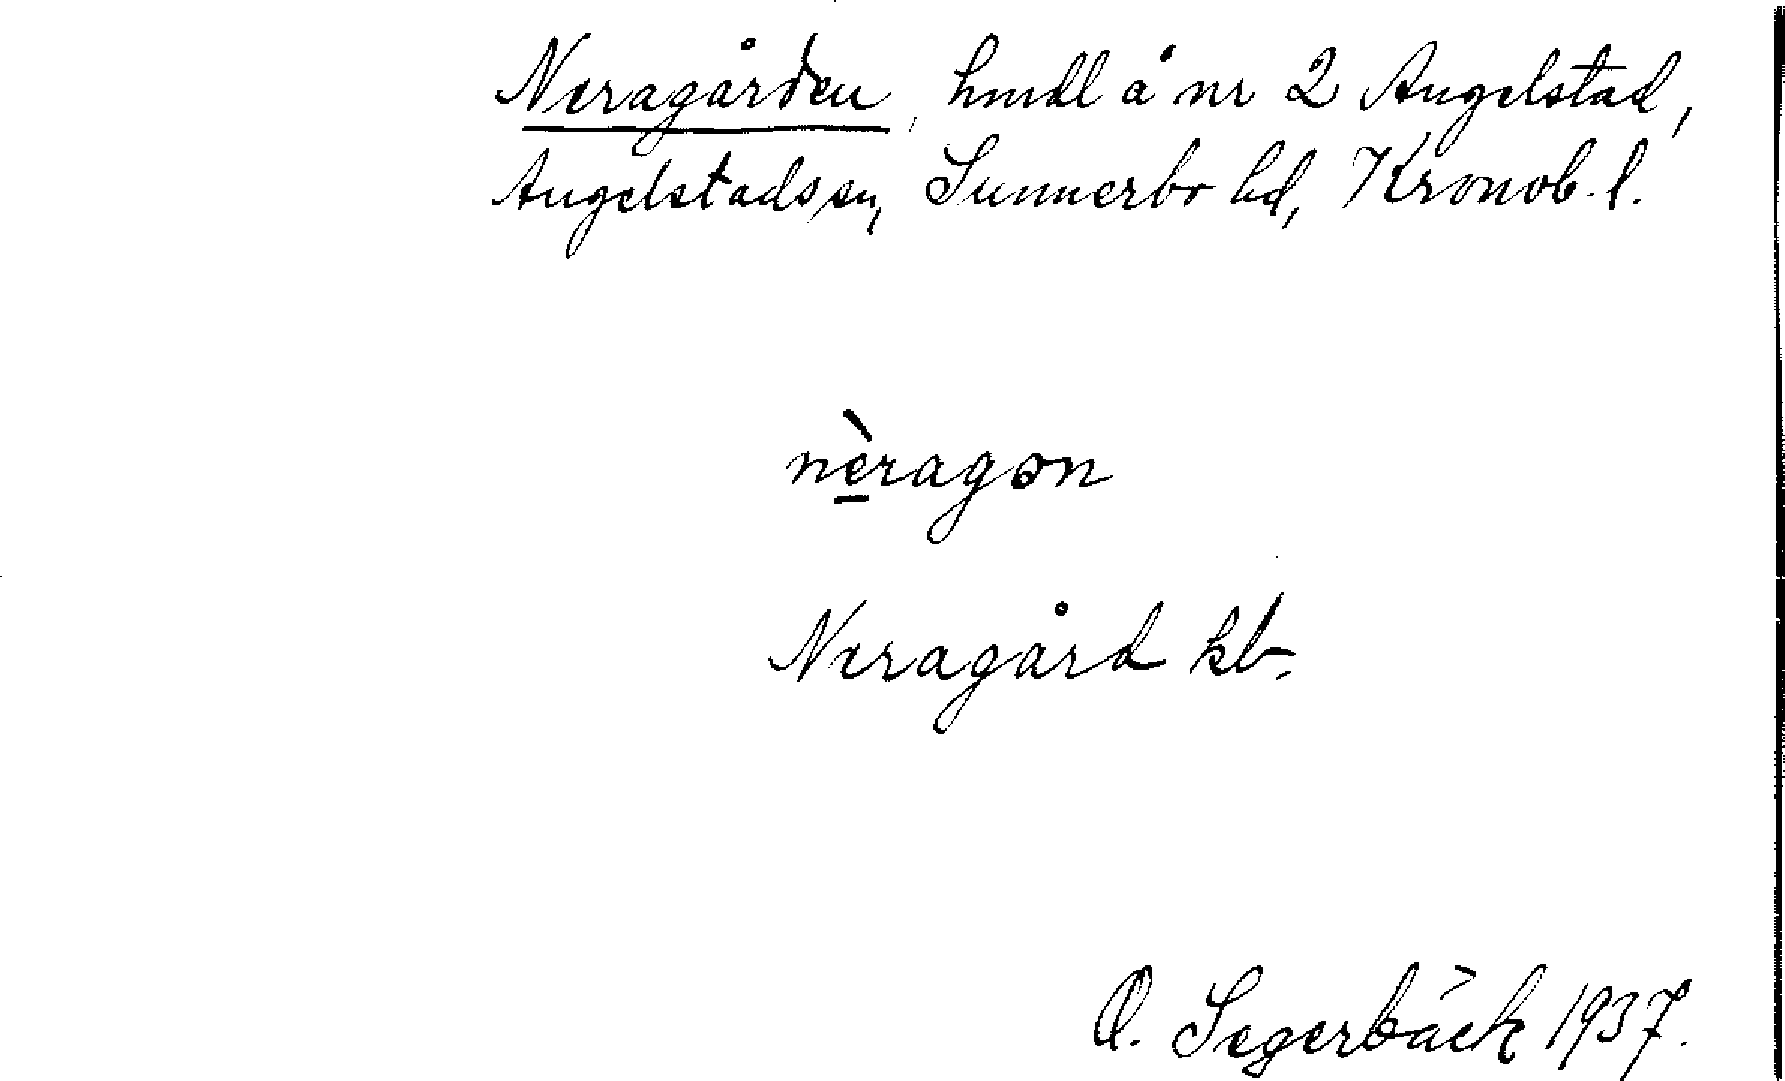 Neragården, hmdl å nr 2 Angelstad,
Angelstads sn, Sunnerbo hd, Kronob. l.
nèragən
Neragård kb.
O. Segerbäck 1937.